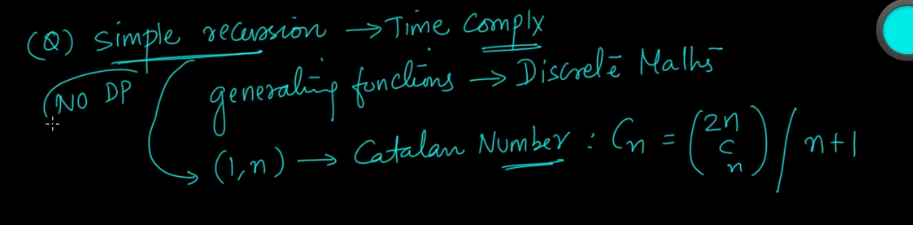 (Q) Simple recursion → Time Complx
(NO DP
generating functions → Discrete Maths
(1,n) → Catalan Number : Cn = (2n C n) / n+1